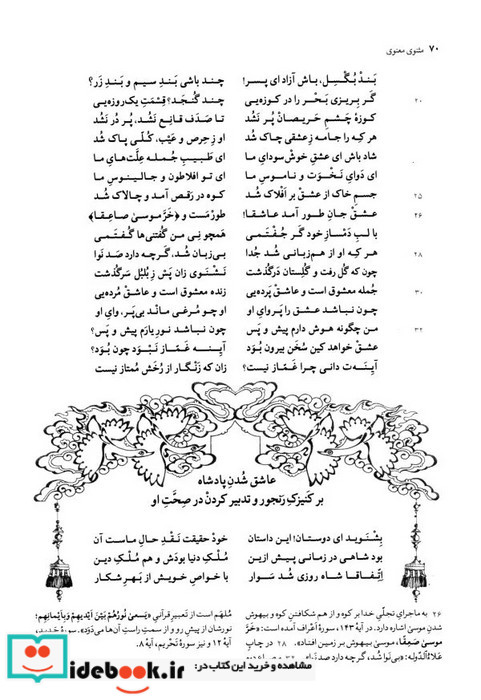 ۷۰ مثنوی معنوی
بَندْ بُگْسِل، باش آزاد ای پسر! چند باشی بَندِ سیم و بَندِ زَر؟
۲۰ گَر بِریزی بَحْر را در کوزه‌یی چند گُنجَد؟ قِسْمَتِ یک‌روزه‌یی
کوزهٔ چَشمِ حَریصانْ پُر نَشُد تا صَدَف قانِع نَشُد، پُر دُر نَشُد
هر که را جامه زِ عشقی چاک شُد او زِ حِرص و عَیْب، کُلّی پاک شُد
شاد باش ای عشقِ خوش‌سودایِ ما ای طَبیبِ جُمله عِلَّت‌هایِ ما
ای دَوایِ نَخْوَت و ناموسِ ما ای تو اَفلاطون و جالینوسِ ما
۲۵ جسمِ خاک از عشق بر اَفْلاک شُد کوه در رَقص آمد و چالاک شُد
۲۶ عشقْ جانِ طور آمد عاشقا! طورْ مَست و ﴿خَرَّ موسیٰ صاعِقا﴾
با لبِ دَمْسازِ خود گَر جُفْتَمی هَمچو نِی من گُفتنی‌ها گُفْتَمی
۲۸ هر که او از هم‌زبانی شُد جُدا بی‌زبان شُد، گَرچه دارد صَد نَوا
چون که گُل رفت و گُلِستان دَرگُذشت نَشْنَوی زان پَس زِ بُلبُل سَرگُذشت
۳۰ جُمله معشوق است و عاشقْ پَرده‌یی زنده معشوق است و عاشقْ مُرده‌یی
چون نباشد عشق را پَروایِ او او چو مُرغی مانْد بی‌پَر، وایِ او
۳۲ من چگونه هوش دارم پیش و پَس چون نباشد نورِ یارم پیش و پَس؟
عشق خواهد کین سُخَن بیرون بُوَد آیِنه غَمّاز نَبْوَد چون بُوَد؟
آیِنه‌ت دانی چرا غَمّاز نیست؟ زان که زَنگار از رُخَش مُمتاز نیست
عاشق شُدنِ پادشاه
بر کَنیزکِ رَنجور و تَدبیر کردنْ در صِحَّتِ او
بِشْنَوید ای دوستان! این داستان خودْ حقیقت نَقْدِ حالِ ماست آن
بود شاهی در زمانی پیش ازین مُلْکِ دنیا بودَش و هم مُلْکِ دین
اِتِّفاقا شاه روزی شُد سَوار با خَواصِ خویش از بَهرِ شکار
۲۶ به ماجرای تجلّیِ خدا بر کوه و از هم شکافتنِ کوه و بیهوش
شدنِ موسیٰ اشاره دارد. در آیهٔ ۱۴۳، سورهٔ أعراف آمده است: «خَرَّ
موسیٰ صَعِقًا»، موسیٰ بیهوش بر زمین افتاد. ۲۸ در چاپ
علاءُالدّوله: «بی‌نوا شُد، گَرچه دارد صد نَوا
مُلهَم است از تعبیرِ قرآنیِ «یَسعیٰ نُورُهُم بَیْنَ أَیدیهِم وَ بِأَیمانِهِم؛
نورشان از پیش رو و از سمتِ راستِ آن‌ها می‌دود.» سورهٔ حدید،
آیهٔ ۱۲ و نیز سورهٔ تحریم، آیهٔ ۸.
مشاهده و خرید این کتاب در:
idebook.ir